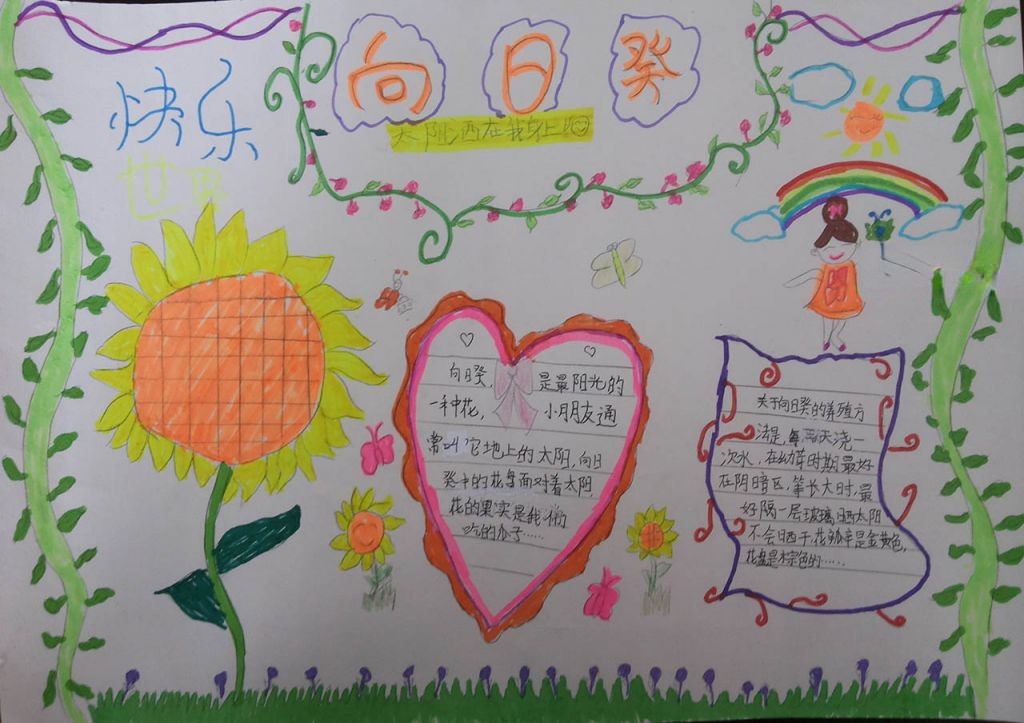 向日葵
太阳洒在我身上
快乐
世界
向日葵，是最阳光的
一种花，小朋友通
常叫它地上的太阳，向日
葵中的花盘面对着太阳，
花的果实是我们
吃的瓜子……
关于向日葵的养殖方
法是，每两天浇一
次水，在幼芽时期最好
在阴暗区，等长大时，最
好隔一层玻璃晒太阳
不会晒干花瓣是金黄色，
花盘是棕色的……